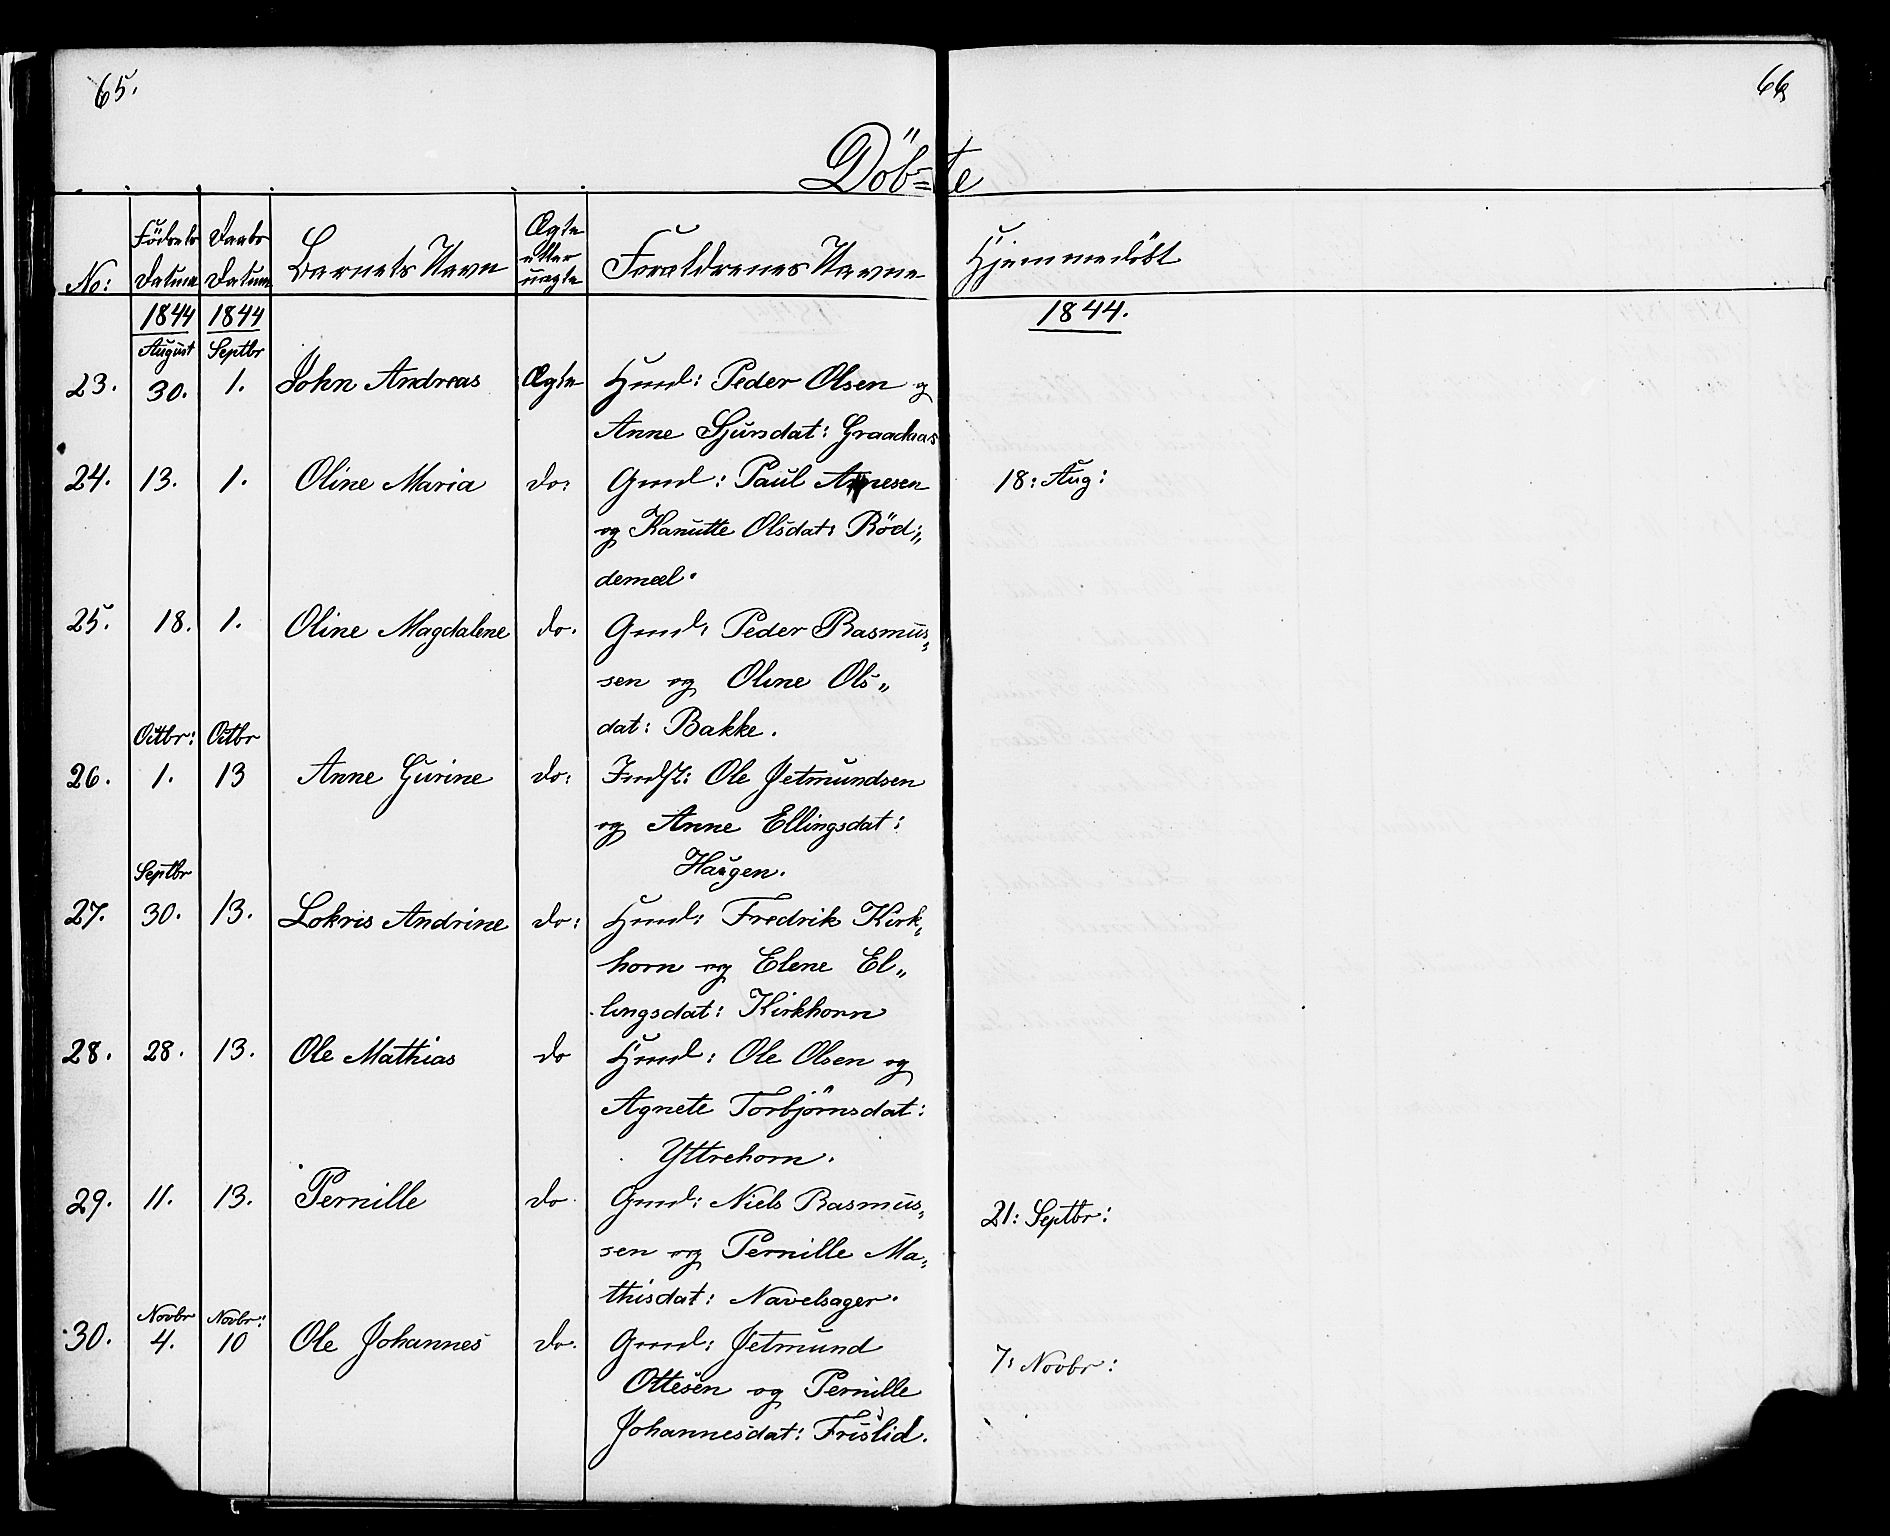 65.
66
Döb=te
No:
Födsels Datum
Daabs Datum
Barnets Navn
Ægte eller uægte
Forældrenes Navne
Hjemmedöbt
1844 1844 1844.
August Septbr
23. 30. 1. John Andreas Ægte Gmd: Peder Olsen og
Anne Sjursdat: Graadaas
24. 13. 1. Oline Maria do: Gmd: Paul Arnesen 18: Aug:
og Kanutte Olsdat: Röd„
demæl.
25. 18. 1. Oline Magdalene do. Gmd: Peder Rasmus„
sen og Oline Ols„
dat: Bakke.
Octbr: Octbr
26. 1. 13 Anne Gurine do: Indst: Ole Jetmundsen
og Anne Ellingsdat:
Haugen.
Septbr
27. 30. 13. Lokris Andrine do: Hmd: Fredrik Kirk„
horn og Elene El„
lingsdat: Kirkhorn
28. 28. 13. Ole Mathias do Hmd: Ole Olsen og
Agnete Torbjörnsdat:
Yttrehorn.
29. 11. 13. Pernille do Gmd: Niels Rasmus„ 21: Septbr:
sen og Pernille Ma„
thisdat: Navelsager.
Novbr Novbr:
30. 4. 10 Ole Johannes do. Gmd: Jetmund 7: Novbr:
Ottesen og Pernille
Johannesdat: Frislid.